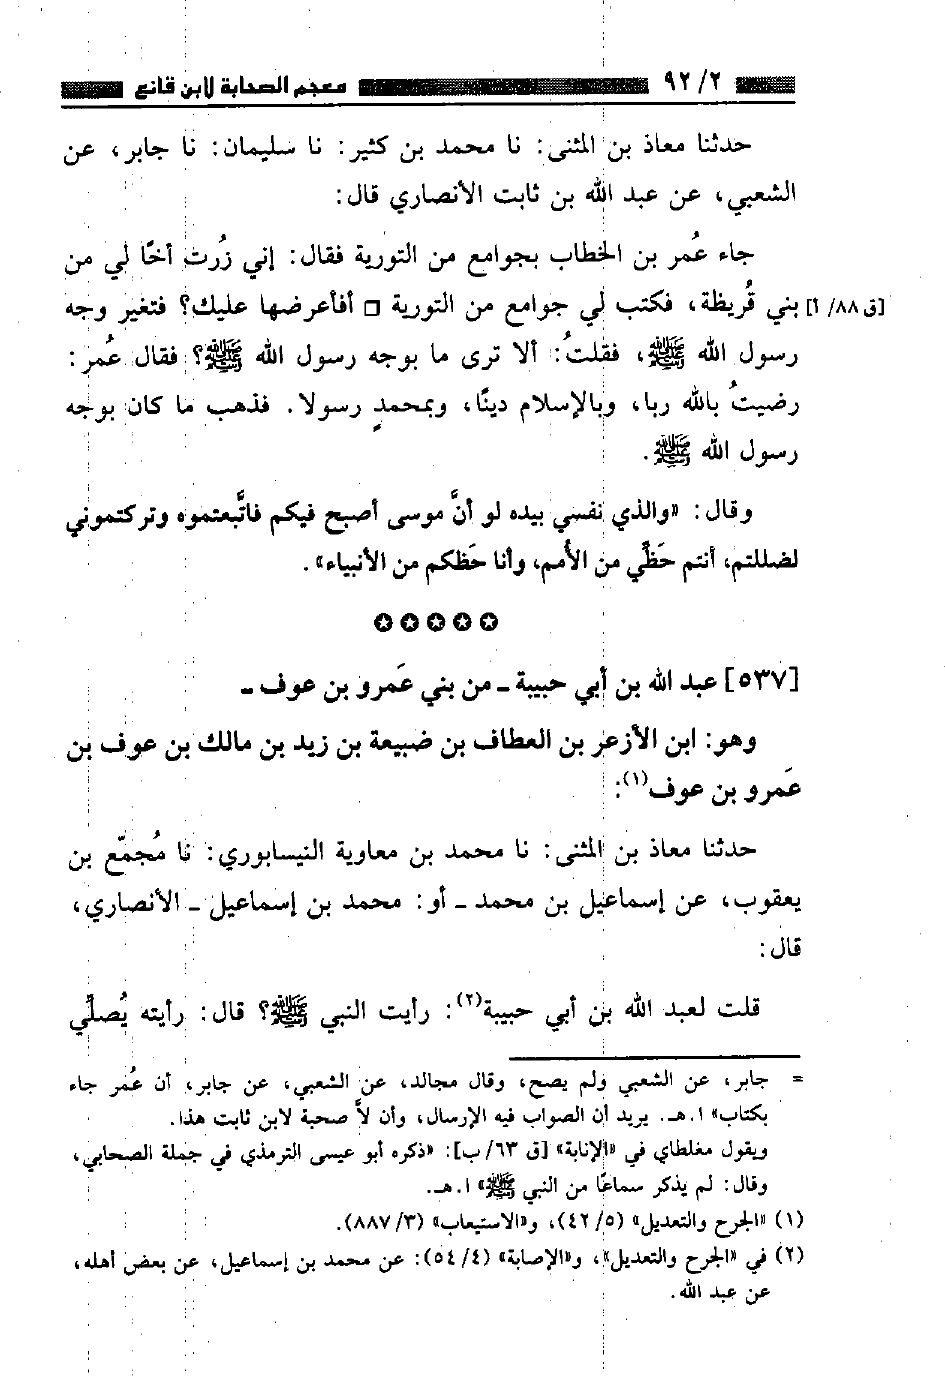 ٩٢/٢ معجم الصحابة لابن قانع
حدثنا معاذ بن المثنى: نا محمد بن كثير: نا سليمان: نا جابر، عن
الشعبي، عن عبد الله بن ثابت الأنصاري قال:
جاء عُمر بن الخطاب بجوامع من التورية فقال: إني زُرت أخًا لي من
[ق ٨٨/ أ] بني قُريظة، فكتب لي جوامع من التورية □ أفأعرضها عليك؟ فتغير وجه
رسول الله ﷺ، فقلتُ: ألا ترى ما بوجه رسول الله ﷺ؟ فقال عُمر:
رضيتُ بالله ربا، وبالإسلام دينًا، وبمحمدٍ رسولا. فذهب ما كان بوجه
رسول الله ﷺ.
وقال: «والذي نفسي بيده لو أنَّ موسى أصبح فيكم فاتَّبعتموه وتركتموني
لضللتم، أنتم حَظِّي من الأُمم، وأنا حَظكم من الأنبياء».
✪ ✪ ✪ ✪ ✪
[٥٣٧] عبد الله بن أبي حبيبة ـ من بني عَمرو بن عوف ـ
وهو: ابن الأزعر بن العطاف بن ضبيعة بن زيد بن مالك بن عوف بن
عَمرو بن عوف(١):
حدثنا معاذ بن المثنى: نا محمد بن معاوية النيسابوري: نا مُجمّع بن
يعقوب، عن إسماعيل بن محمد ـ أو: محمد بن إسماعيل ـ الأنصاري،
قال:
قلت لعبد الله بن أبي حبيبة(٢): رأيت النبي ﷺ؟ قال: رأيته يُصلِّي
= جابر، عن الشعبي ولم يصح، وقال مجالد، عن الشعبي، عن جابر، أن عُمر جاء
بكتاب» ا.هـ. يريد أن الصواب فيه الإرسال، وأن لا صحبة لابن ثابت هذا.
ويقول مغلطاي في «الإنابة» [ق ٦٣/ ب]: «ذكره أبو عيسى الترمذي في جملة الصحابي،
وقال: لم يذكر سماعًا من النبي ﷺ» ا.هـ.
(١) «الجرح والتعديل» (٤٢/٥)، و«الاستيعاب» (٨٨٧/٣).
(٢) في «الجرح والتعديل»، و«الإصابة» (٥٤/٤): عن محمد بن إسماعيل، عن بعض أهله،
عن عبد الله.